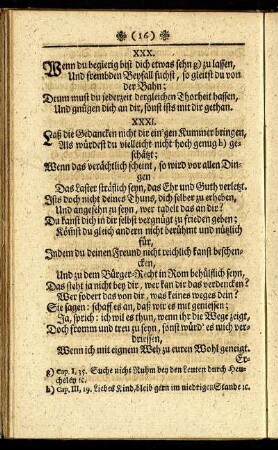 (16)
XXX.
Wenn du begierig bist dich etwas sehn g) zu lassen,
Und frembden Beyfall suchst, so gleitst du von
der Bahn;
Drum must du jederzeit dergleichen Thorheit hassen,
Und gnügen dich an dir, sonst ists mit dir gethan.
XXXI.
Laß die Gedancken nicht dir ein'gen Kummer bringen,
Als würdest du vielleicht nicht hoch genug h) ge-
schätzt;
Wenn das verächtlich scheint, so wird vor allen Din-
gen
Das Laster sträflich seyn, das Ehr und Guth verletzt.
Ists doch nicht deines Thuns, dich selber zu erheben,
Und angesehn zu seyn, wer tadelt das an dir?
Du kanst dich in dir selbst vergnügt zu frieden geben;
Könst du gleich andern nicht berühmt und nützlich
für,
Indem du deinen Freund nicht reichlich kanst beschen-
cken,
Und zu dem Bürger-Recht in Rom behülflich seyn,
Das steht ja nicht bey dir, wer kan dir das verdencken?
Wer fodert das von dir, was keines weges dein?
Sie sagen: schaff es an, daß wir es mit geniessen;
Ja, sprich: ich wil es thun, wenn ihr die Wege zeigt,
Doch fromm und treu zu seyn, sonst würd' es mich ver-
driessen,
Wenn ich mit eignem Weh zu euren Wohl geneigt.
Er-
g) Cap. I, 35. Suche nicht Ruhm bey den Leuten durch Heu-
cheley ꝛc.
h) Cap. III, 19. Liebes Kind, bleib gern im niedrigen Stande ꝛc.